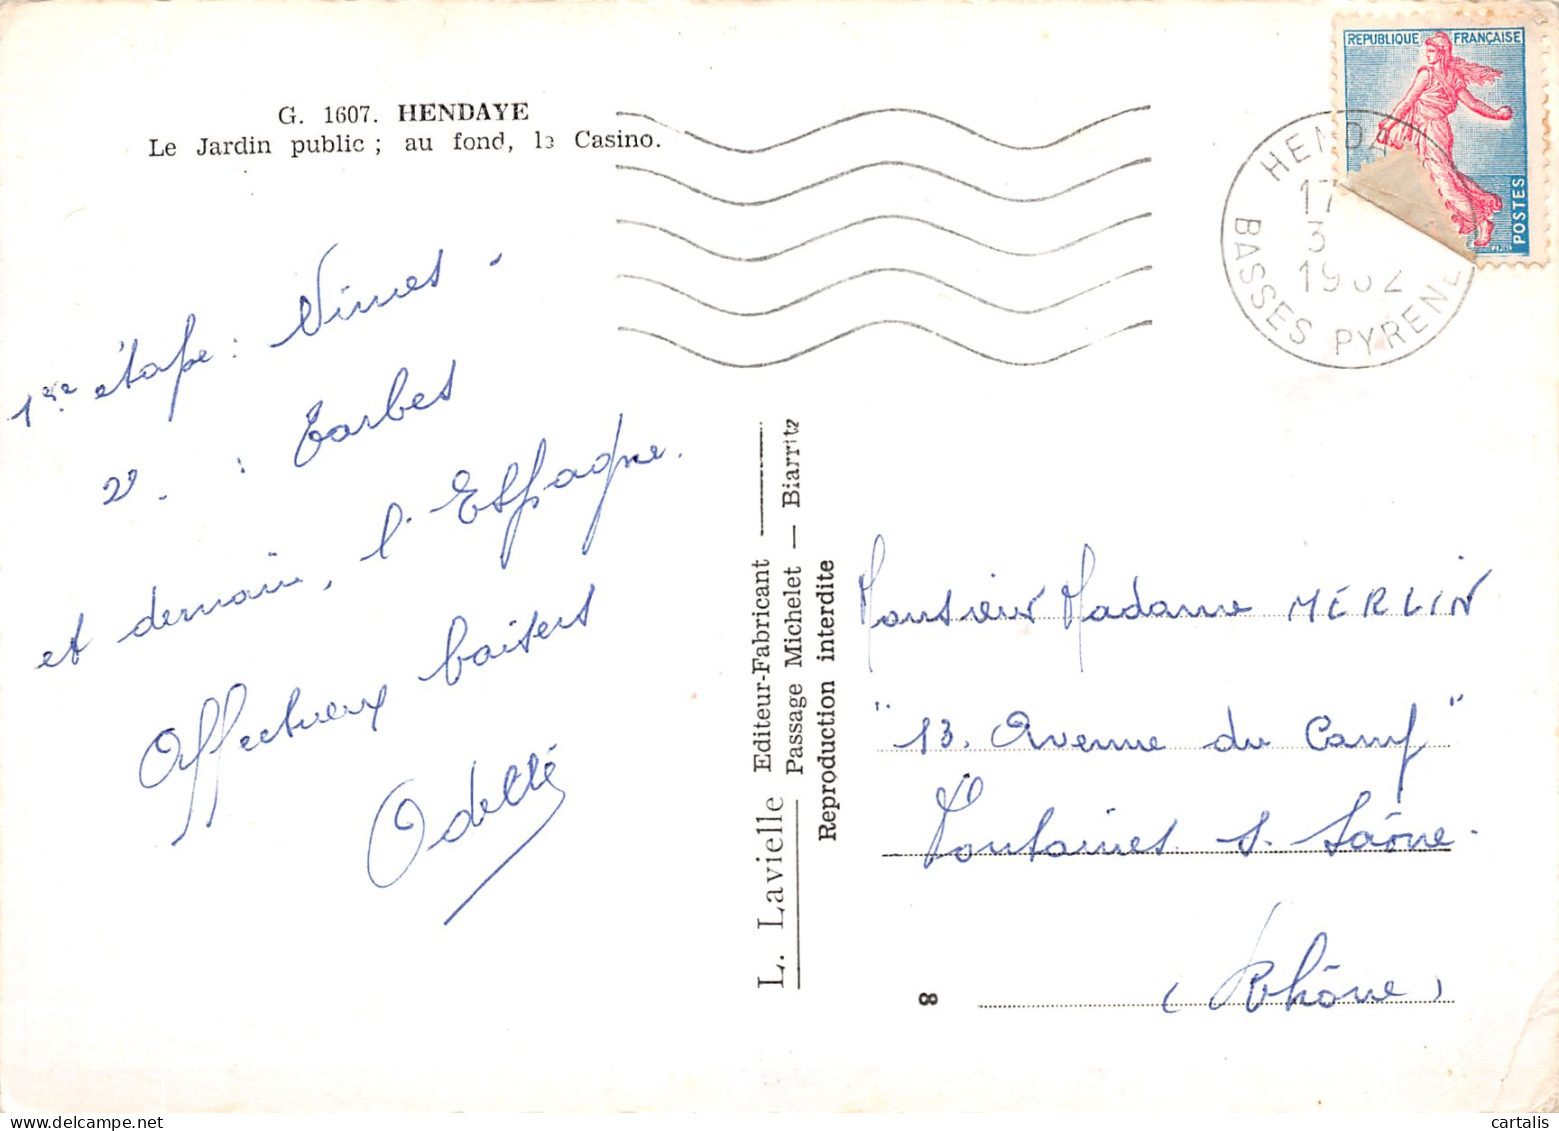 G. 1607. HENDAYE
Le Jardin public ; au fond, le Casino.
REPUBLIQUE FRANÇAISE
POSTES
HENDA
17
3
1962
BASSES PYRENE
1ère étape : Nimes -
2e. : Tarbes
et demain, l'Espagne.
Affectueux baisers
Odette
L. Lavielle Editeur-Fabricant
Passage Michelet — Biarritz
Reproduction interdite
Monsieur Madame MERLIN
"13. Avenue du Camp"
Fontaines s. Saône.
(Rhône)
8
cartalis